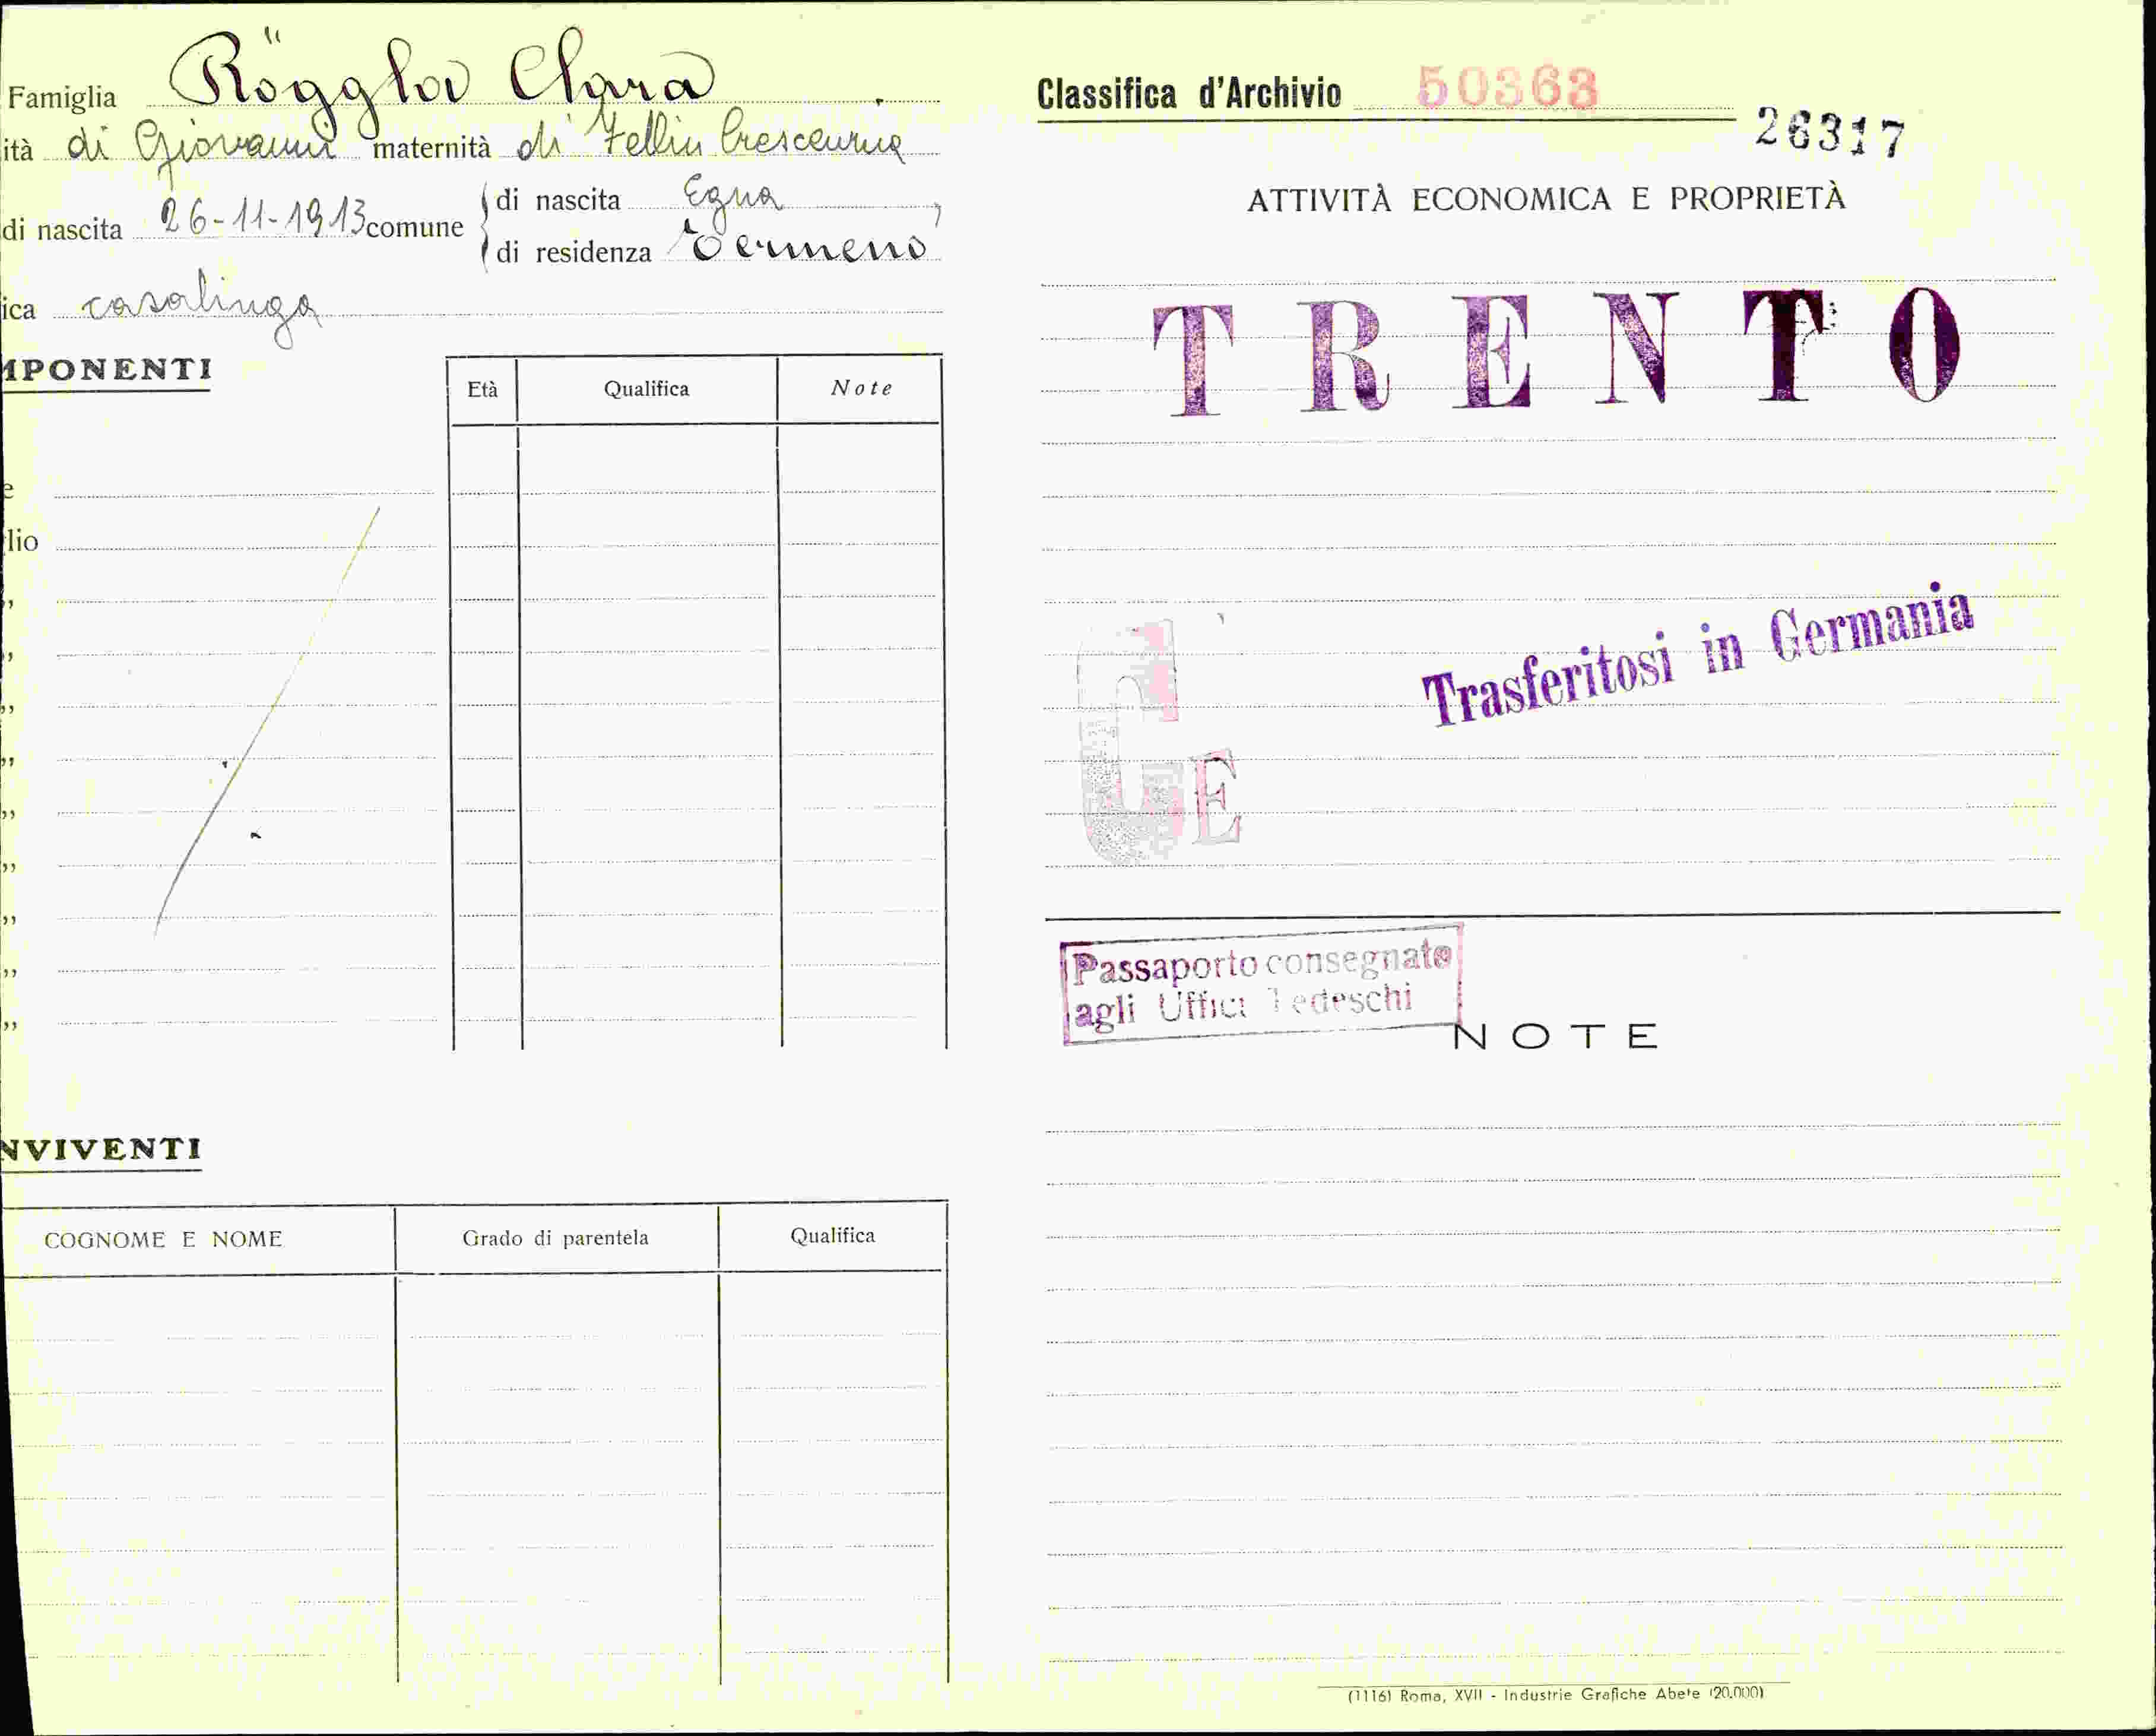 Famiglia Röggla Clara
ità di Giovanni maternità di Fellin Crescenzia
di nascita 26-11-1913 comune
di nascita Egna
di residenza Termeno
ica casalinga
MPONENTI
Età Qualifica Note
e
lio
„
„
„
„
„
„
„
„
„
NVIVENTI
COGNOME E NOME Grado di parentela Qualifica
Classifica d'Archivio 50363
26317
ATTIVITÀ ECONOMICA E PROPRIETÀ
TRENTO
Trasferitosi in Germania
G E
Passaporto consegnato
agli Uffici Tedeschi
NOTE
(1116) Roma, XVII - Industrie Grafiche Abete (20.000)